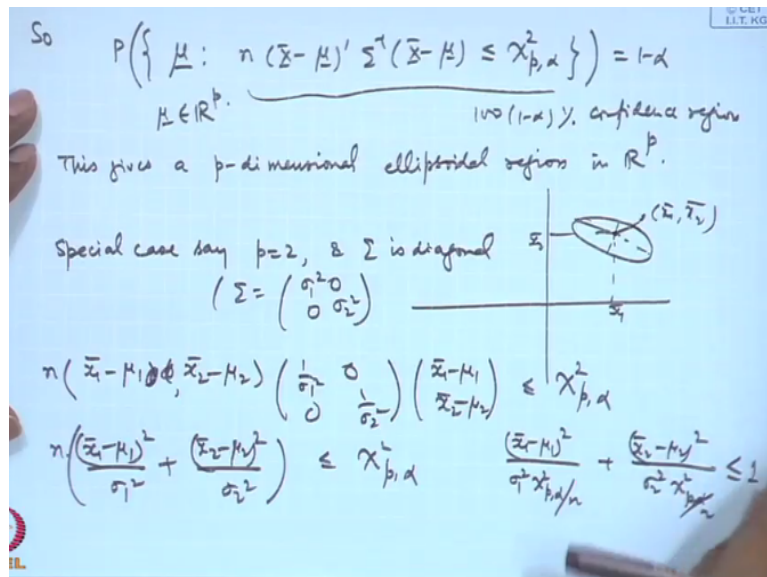 © CET
I.I.T. KG
So P({ μ : n (x̄ - μ)' Σ⁻¹ (x̄ - μ) ≤ χ²_{p,α} }) = 1-α
μ ∈ ℝ^p. 100(1-α)% confidence region
This gives a p-dimensional ellipsoidal region in ℝ^p.
(x̄₁, x̄₂)
x̄₂
Special case say p=2, & Σ is diagonal
(Σ = (σ₁² 0
0 σ₂²)
x̄₁
n( x̄₁ - μ₁, x̄₂ - μ₂) (1/σ₁² 0 0 1/σ₂²) (x̄₁ - μ₁ x̄₂ - μ₂) ≤ χ²_{p,α}
n((x̄₁ - μ₁)²/σ₁² + (x̄₂ - μ₂)²/σ₂²) ≤ χ²_{p,α} (x̄₁ - μ₁)²/σ₁² χ²_{p,α}/n + (x̄₂ - μ₂)²/σ₂² χ²_{p,α}/n ≤ 1
EL